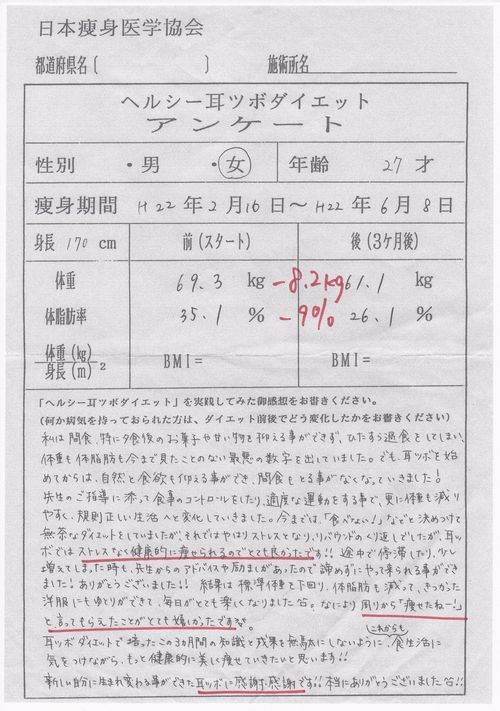 日本痩身医学協会
都道府県名〔 〕 施術所名
ヘルシー耳ツボダイエット
アンケート
性別 ・男 ・女 年齢 27才
痩身期間 H22年2月16日～H22年6月8日
身長170cm 前(スタート) 後(3ケ月後)
体重 69.3 kg -8.2kg 61.1 kg
体脂肪率 35.1 % -9% 26.1 %
体重(kg)
身長(m)2 BMI= BMI=
「ヘルシー耳ツボダイエット」を実践してみた御感想をお書きください。
(何か病気を持っておられた方は、ダイエット前後でどう変化したかをお書きください)
私は間食、特に夕食後のお菓子や甘い物を抑える事ができず、ひたすら過食をしてしまい、
体重も体脂肪も今まで見たことのない最悪の数字を出していました。でも、耳ツボを始
めてからは、自然と食欲も抑える事ができ、間食もとる事がなくなっていきました!
先生のご指導に添って食事のコントロールをしたり、適度な運動をする事で、更に体重も減り
やすく、規則正しい生活へと変化していきました。今までは、「食べない!」などと決めつけて
無茶なダイエットをしていましたが、それではやはりストレスとなり、リバウンドのくり返しでしたが、耳ツ
ボではストレスなく健康的に痩せられるのでとても良かったです!! 途中で停滞したり、少し
増えてしまった時も、先生からのアドバイスや励ましがあったので諦めずにやって来られる事ができ
ました!ありがとうございました!! 結果は標準体重を下回り、体脂肪も減って、きつかった
洋服にもゆとりができて、毎日がとても楽しくなりました。なにより周りから「痩せたねー!」
と言ってもらえたことがとても嬉しかったです。
耳ツボダイエットで培ったこの3カ月間の知識と成果を無駄にしないように、これからも食生活に
気をつけながら、もっと健康的に美しく痩せていきたいと思います!!
新しい自分に生まれ変わる事ができた耳ツボに感謝、感謝です!!本当にありがとうございました!!